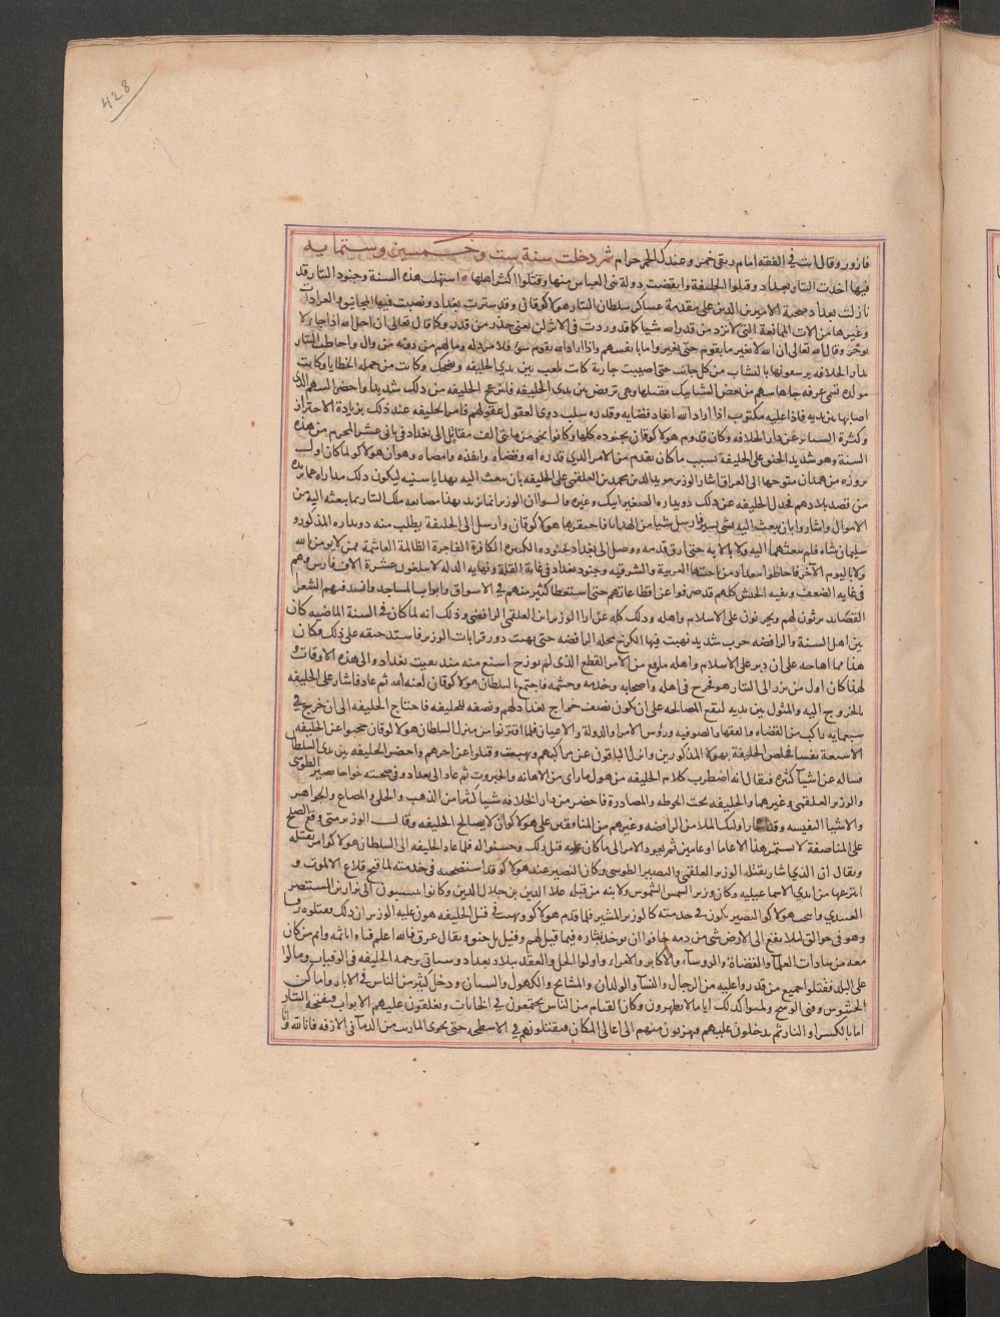 428
فازور وقال انت في الفقه امام ربقي خمر وعندك الخمر حرام ثم دخلت سنة ست وخمسين وستمايه
فيها اخذت التتار بغداد وقتلوا الخليفة وانقضت دولة بني العباس منها وقتلوا اكثر اهلها استهلت هذه السنة وجنود التتار قد
نازلت بغداد صحبة الاميرين الذين على مقدمة عساكر سلطان التتار هولاكوقان وقد سترت بغداد ونصبت فيها المجانيق والعرادات
وغيرها من الات الممانعة التي لا ترد من قدر الله شيا كما قد وردت في الاثر لن يغني حذر من قدر وكما قال تعالى ان اجل الله اذا جاء لا
يوخر وقال الله تعالى ان الله لا يغير ما بقوم حتى يغيروا ما بانفسهم واذا اراد الله بقوم سوء فلا مرد له وما لهم من دونه من وال واحاطت التتار
بدار الخلافه يرسعونها بالنشاب من كل جانب حتى اصيبت جارية كانت تلعب بين يدي الخليفه وتضحك وكانت من جمله الخطايا وكانت
مولده تسمى عرفه جاها سهم من بعض الشبابيك فقتلها وهي ترقص بين يدى الخليفه فانزعج الخليفه من ذلك شديدا واحضر السهم الذي
اصابها بين يديه فاذا عليه مكتوب اذا اراد الله انفاد قضايه وقدره سلب ذوى العقول عقولهم فامر الخليفه عند ذلك بزيادة الاحتراز
وكثرة الستاير عن دار الخلافه وكان قدوم هولاكوقان بجنوده كلها وكانوا نحو من مايتي الف مقاتل الى بغداد في ثاني عشر المحرم من هذه
السنة وهو شديد الحنق على الخليفة بسبب ما كان تقدم من الامر الذي قدره الله وقضاه وانفذه وامضاه وهو ان هولاكو لما كان اول
بروزه من همدان متوجها الى العراق اشار الوزير مويد الدين محمد بن العلقمي على الخليفه بان يبعث اليه بهدايا سنيه ليكون ذلك مداراه عما يريده
من قصد بلادهم فخذل الخليفه عن ذلك دويداره الصغير ايبك وغيره وقالسوا ان الوزير انما يريد بهذا مصانعه ملك التتار بما يبعثه اليه من
الاموال واشاروا بان يبعث اليه بشي يسير فارسل شيا من الهدايا فاحتقرها هولاكوقان وارسل الى الخليفة يطلب منه دويداره المذكور و
سليمان شاه فلم يبعثهما اليه ولا بالا به حتى ازف قدمه ووصل الى بغداد بجنوده الكثيره الكافرة الفاجرة الظالمة الغاشمة ممن لا يومن بالله
ولا باليوم الآخر فاحاطوا ببغداد من ناحيتها الغربية والشرقيه وجنود بغداد في غاية القلة ونهايه الذله لا يبلغون عشرة الاف فارس وهم
في غايه الضعف وبقيه الجيش كلهم قد صرفوا عن اقطاعاتهم حتى استعطا كثير منهم في الاسواق وابواب المساجد وانشد فيهم الشعرا
القصايد يرثون لهم ويحزنون على الاسلام واهله وذلك كله عن ارا الوزير ابن العلقمي الرافضي وذلك انه لما كان في السنة الماضيه كان
بين اهل السنة والرافضه حرب شديد نهبت فيها الكرخ محله الرافضه حتى نهبت دور قرابات الوزير فاستد حنقه على ذلك فكان
هذا مما اهاجه على ان دبر على الاسلام واهله ما وقع من الامر الفظع الذي لم يورخ اشنع منه منذ بنيت بغداد والى هذه الاوقات و
لهذا كان اول من برز الى التتار هو فخرج في اهله واصحابه وخدمه وحشمه فاجتمع بالسلطان هولاكوقان لعنه الله ثم عاد فاشار على الخليفه
بالخروج اليه والمثول بين يديه لتقع المصالحه على ان يكون نصف خراج بغداد لهم ونصفه للخليفه فاحتاج الخليفه الى ان خرج في
سبعمايه راكب من القضاه والفقها والصوفيه وروس الامرا والدولة والاعيان فلما اقتربوا من منزل السلطان هولاكوقان حجبوا عن الخليفه
الا سبعة نفسا فخلص الخليفة بهولا المذكورين وانزل الباقون عن مراكبهم ونهبت وقتلوا عن اخرهم واحضر الخليفه بين يدى السلطان
فساله عن اشيا كثيره فيقال انه اضطرب كلام الخليفه من هول ما راى من الاهانه والجبروت ثم عاد الى بغداد وفي صحبته خواجا نصير الطوسي
والوزير العلقمي وغيرهما والخليفه تحت الحوطه والمصادرة فاحضر من دار الخلافه شيا كثيرا من الذهب والحلي والمصاغ والجواهر
والاشيا النفيسه وقد اشار اوليك الملا من الرافضه وغيرهم من المنافقين على هولاكوان لا يصالح الخليفه وقال الوزير متى وقع الصلح
على المناصفة لا يستمر هذا الا عاما او عامين ثم يعود الامر الى ما كان عليه قبل ذلك وحسنوا له فلما عاد الخليفه الى السلطان هولاكو امر بقتله
ويقال ان الذي اشار بقتله الوزير العلقمي والنصير الطوسي وكان النصير عند هولاكو قد استصحبه في خدمته لما فتح قلاع الالموت و
انتزعها من ايدي الاسماعيليه وكان وزير الشمس الشموس ولابنه من قبله علا الدين بن جلال الدين وكانوا ينسبون الى نزار بن المستنصر
العبيدي وانتخب هولاكو النصير ليكون في خدمته كالوزير المشير فلما قدم هولاكو ونهيب في قتل الخليفه هون عليه الوزير ان ذلك فقتلوه رفسا
وهو في جوالق ليلا يقع الى الارض شي من دمه خافوا ان يوخذ بثاره فيما قيل لهم وقيل بل خنق ويقال غرق فالله اعلم فباء اباثمه واثم من كان
معه من سادات العلما والقضاة والروسا والاكابر والامراء واولوا الحل والعقد ببلاد بغداد وستاتي ترجمه الخليفه في الوفيات ومالوا
على البلد فقتلوا جميع من قدروا عليه من الرجال والنسا والولدان والمشايخ والكهول والشبان ودخل كثير من الناس في الابار واماكن
الحشوش وقنى الوسخ ولبسوا كذلك اياما لا يظهرون وكان الفيام من الناس يجتمعون في الخانات ويغلقون عليهم الابواب فيفتحه التتار
اما بالكسر او النار ثم يدخلون عليهم فيهربون منهم الى اعالى المكان فيقتلونهم في الاسطحه حتى تجرى الميازيب من الدما في الازقه فانا لله وانا